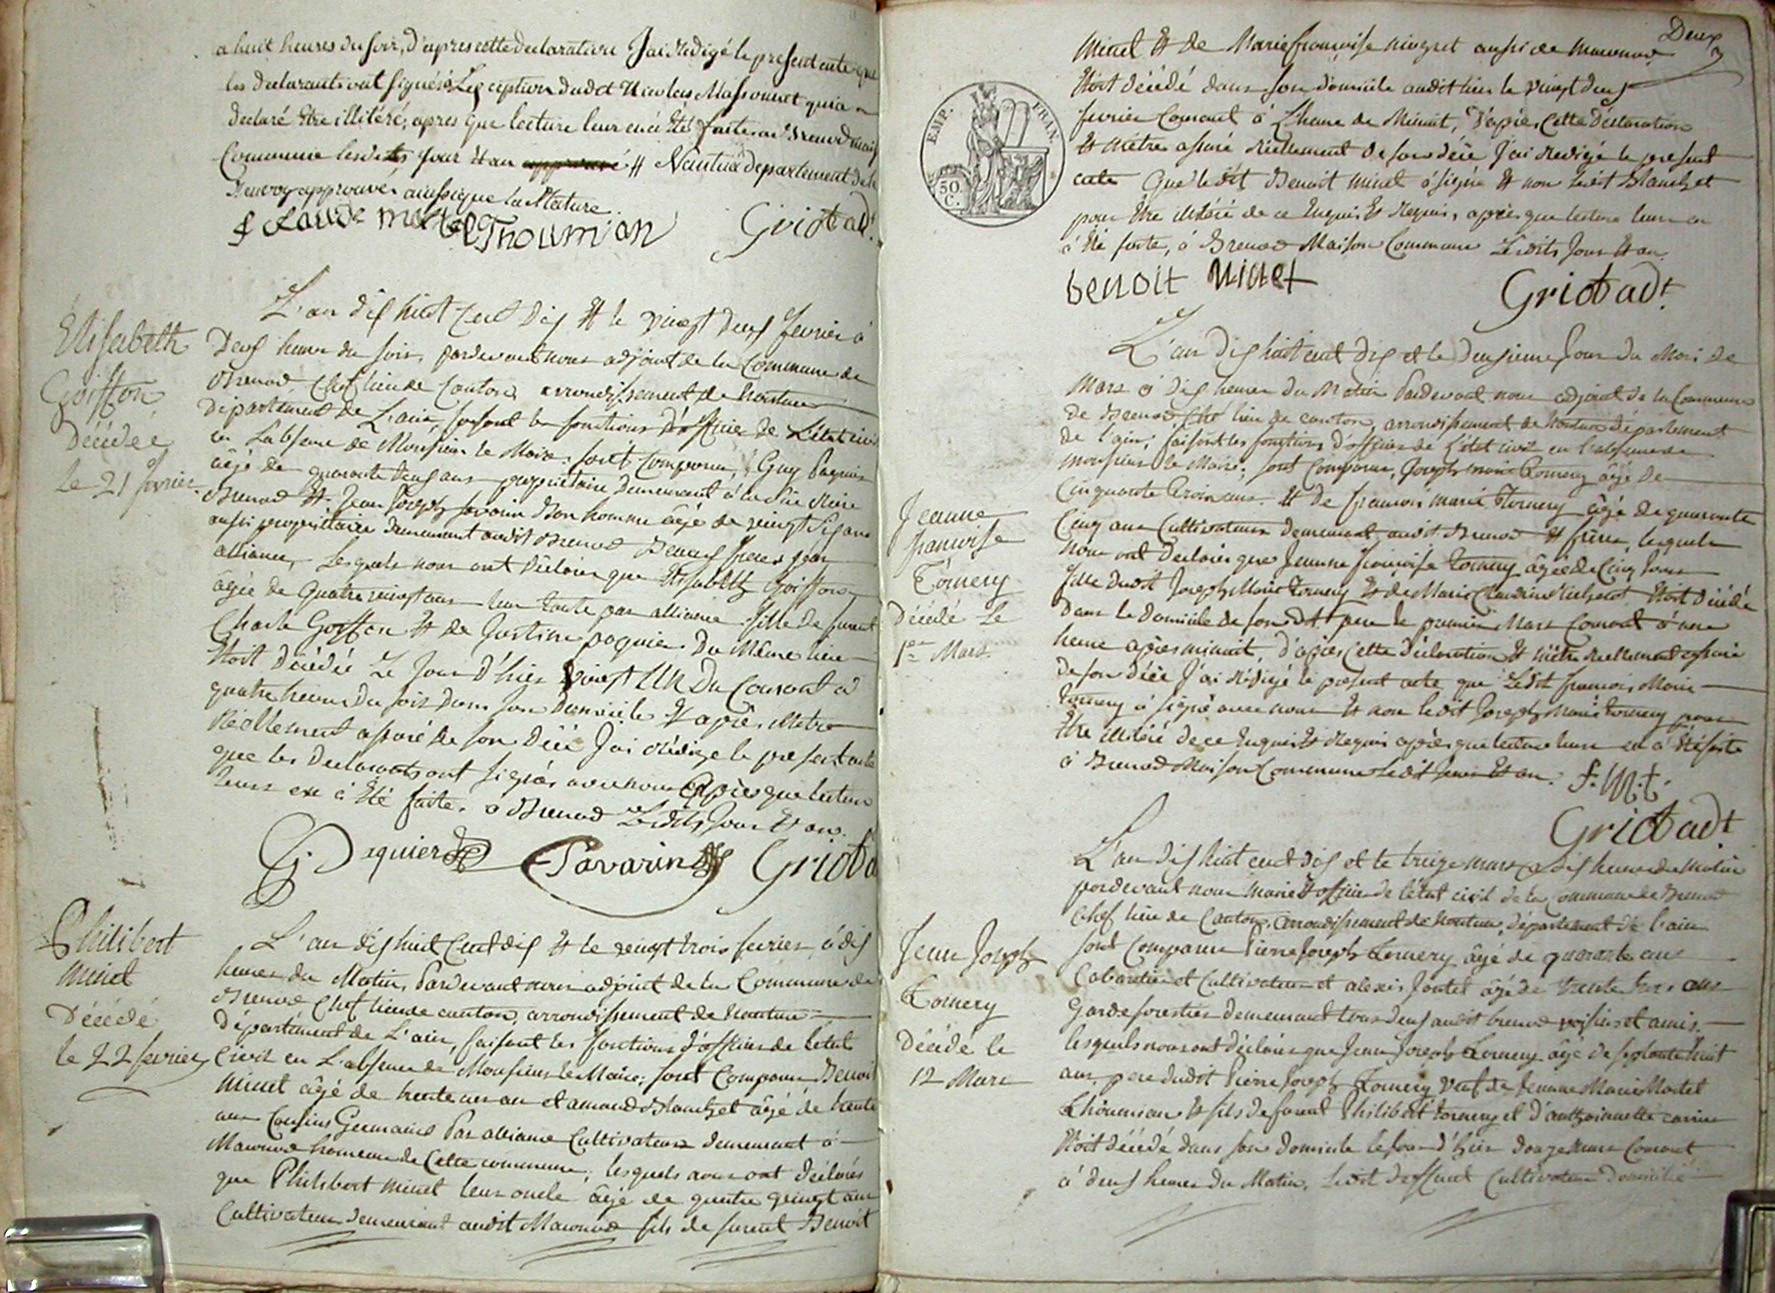 a huit heures du soir, d'apres cette declaration J'ai redigé le present acte que
les declarants ont signés à L'exception dudit Nicolas Massonnet qui a
declaré Etre illitéré, apres que lecture leur en a Eté faite a Brenod maison
Commune lesdits jour et an approuvé # Nantua departement de l'
approuvé aussi que la Rature
Claude Thoumian Griotadt
Elisabeth
Goiffon
Décédée
le 21 fevrier
L'an dix huit Cent Dix et le vingt deux fevrier à
Deux heures du soir, pardevant nous adjoint de la Commune de
Brenod Chef lieu de Canton, arrondissement de Nantua
Département de L'ain, faisant les fonctions d'officier de L'état civil
en L'absence de Monsieur le Maire; sont Comparus, Guy Paquier
âgé de quarante deux ans propriétaire demeurant à
Brenod et Jean Joseph Savarin Bon homme âgé de vingt six ans
aussi propriétaire demeurant audit Brenod Beaux freres par
alliance, Lesquels nous ont Déclaré que Elisabeth Goiffon
âgée de Quatre vingt ans leur tante par alliance fille de furent
Charle Goiffon et de Justine paquier Du Même lieu
Etoit Décédée Le Jour d'hier vingt UN Du Courant à
quatre heures Du soir Dans son Domicile et après M'etre
Réellement assuré de son Décé J'ai rédigé le present acte
que les Declarants ont signés avec nous Après que lecture
leurs en a Eté faite, a Brenod Lesdits Jour et an.
G. Paquier Savarin Griota
Philibert
Minet
Décédé
le 22 fevrier
L'an dix huit Cent dix et le vingt trois fevrier à dix
heures du Matin, Pardevant nous adjoint de la Commune de
Brenod Chef lieu de canton, arrondissement de Nantua
Département de L'ain, faisant les fonctions d'officier de l'état
Civil en L'absence de Monsieur le Maire; sont Comparus Benoit
Minet âgé de trente un an et amand Blanchet âgé de trente
ans Cousins Germains Par alliance Cultivateurs demeurant à
Macconod hameau de Cette commune; lesquels nous ont déclarés
que Philibert Minet leur oncle âgé de quatre vingt ans
Cultivateur demeurant audit Macconod fils de furent Benoit
Deux
Minet et de Marie françoise aussi de Macconod
Etoit décédé dans son domicile audit lieu le vingt deux
fevrier Courant à L'heure de Minuit, D'apres Cette Déclaration
et M'etre assuré Réellement de son décé J'ai redigé le present
acte Que ledit Benoit Minet à signé et non ledit Blanchet
pour Etre illitéré de ce Enquis et Requis, après que lecture leur en
à Eté faite, à Brenod Maison Commune Lesdits Jour et an.
EMP. FRAN.
50 C.
Benoit Minet Griotadt
Jeanne
françoise
Tornery
Décédé Le
1er Mars
L'an dix huit cent dix et le Deuxieme Jour du Mois de
Mars à dix heures du Matin Pardevant nous adjoint de la Commune
de Brenod Chef lieu de canton, arrondissement de Nantua département
de l'ain; faisant les fonctions d'officier de L'état civil en l'absence de
Monsieur le Maire; sont Comparus, Joseph Marie Tornery âgé de
Cinquante trois ans et de françois Marie Tornery âgé de quarante
Cinq ans Cultivateurs demeurant audit Brenod et frères, lesquels
nous ont Declarés que Jeanne françoise Tornery âgée de Cinq Jours
fille dudit Joseph Marie Tornery et de Marie Claudine Etoit décédé
Dans le Domicile de sondit pere le premier Mars Courant à une
heure après minuit d'après Cette Déclaration et M'etre Réellement assuré
de son Décé J'ai rédigé le présent acte que ledit françois Marie
Tornery à signé avec nous et non ledit Joseph Marie Tornery pour
Etre illitéré de ce Enquis et Requis après que lecture leur en à Eté faite
à Brenod Maison Commune ledit Jour et an. f. M. t.
Griotadt
Jean Joseph
Tornery
Décédé le
12 Mars
L'an dix huit cent dix et le treize mars à dix heures du Matin
pardevant nous Maire et officier de l'état civil de la Commune de Brenod
Chef lieu de Canton, arrondissement de Nantua, département de l'ain
sont Comparus Pierre Joseph Tornery âgé de quarante ans
Cabaretier et Cultivateur et alexis Jantet âgé de trente trois ans
Garde forestier demeurant tous deux audit brenod voisins et amis.
lesquels nous ont déclarés que Jean Joseph Tornery âgé de septante huit
ans, pere dudit Pierre Joseph Tornery veuf de Jeanne Marie Martel
Thoumian et fils de furent Philibert Tornery et d'anthoinette Carrier
Etoit décédé dans son domicile le Jour d'hier douze Mars Courant
à deux heures Du Matin, ledit deffunt Cultivateur Domicilié